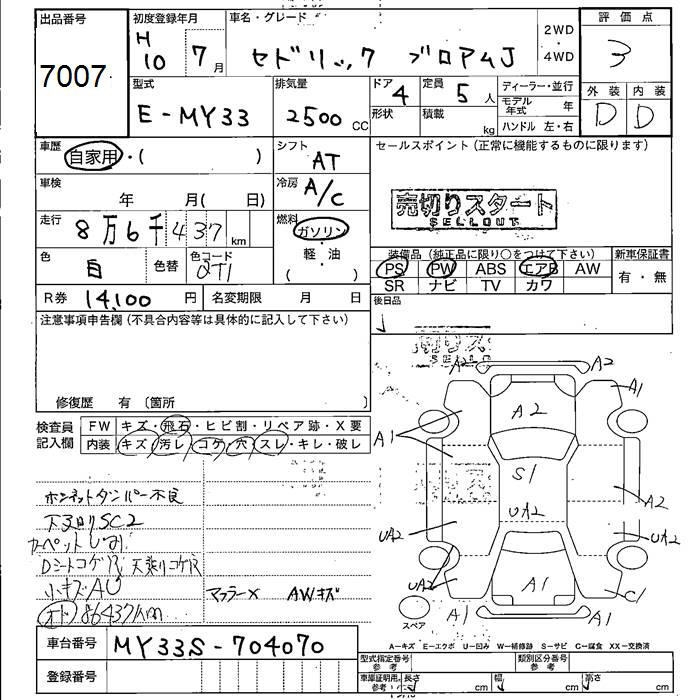 出品番号 7007
初度登録年月 H10 7月
車名・グレード セドリック ブロアムJ
2WD・4WD
評価点 3
型式 E-MY33
排気量 2500CC
ドア 4
形状
定員 5人
積載 kg
ディーラー・並行
モデル年式 年
ハンドル 左・右
外装 内装
D D
車歴 自家用・( )
シフト AT
セールスポイント (正常に機能するものに限ります)
車検 年 月( 日)
冷房 A/C
売切りスタート
SELLOUT
走行 8万6千437km
燃料 ガソリン・軽・油 ( )
色 白 色替 色コード QT1
装備品 (純正品に限り○をつけて下さい) 新車保証書
PS PW ABS エアB AW 有・無
SR ナビ TV カワ
R券 14,100円 名変期限 月 日
後日品
注意事項申告欄 (不具合内容等は具体的に記入して下さい)
修復歴 有 〔箇所 〕
検査員記入欄
FW キズ・飛石・ヒビ割・リペア跡・X要
内装 キズ・汚レ・コゲ・穴・スレ・キレ・破レ
ボンネットダンパー不良
下廻りSC2
カーペットしみ
Dシートコゲ穴 天張りコゲ穴
小キズAU
マフラーX AWキズ
オド 86437km
A2 A2
A1
A2
A1
S1
A2
UA2
UA2 UA2
UA2
A1 C1
A1 A1
スペア
A-キズ E-エクボ U-凹み W-補修跡 S-サビ C-腐食 XX-交換済
車台番号 MY33S-704070
登録番号
型式指定番号 参考 類別区分番号 参考
車庫証明用 参考 長さ cm 幅 cm 高さ cm